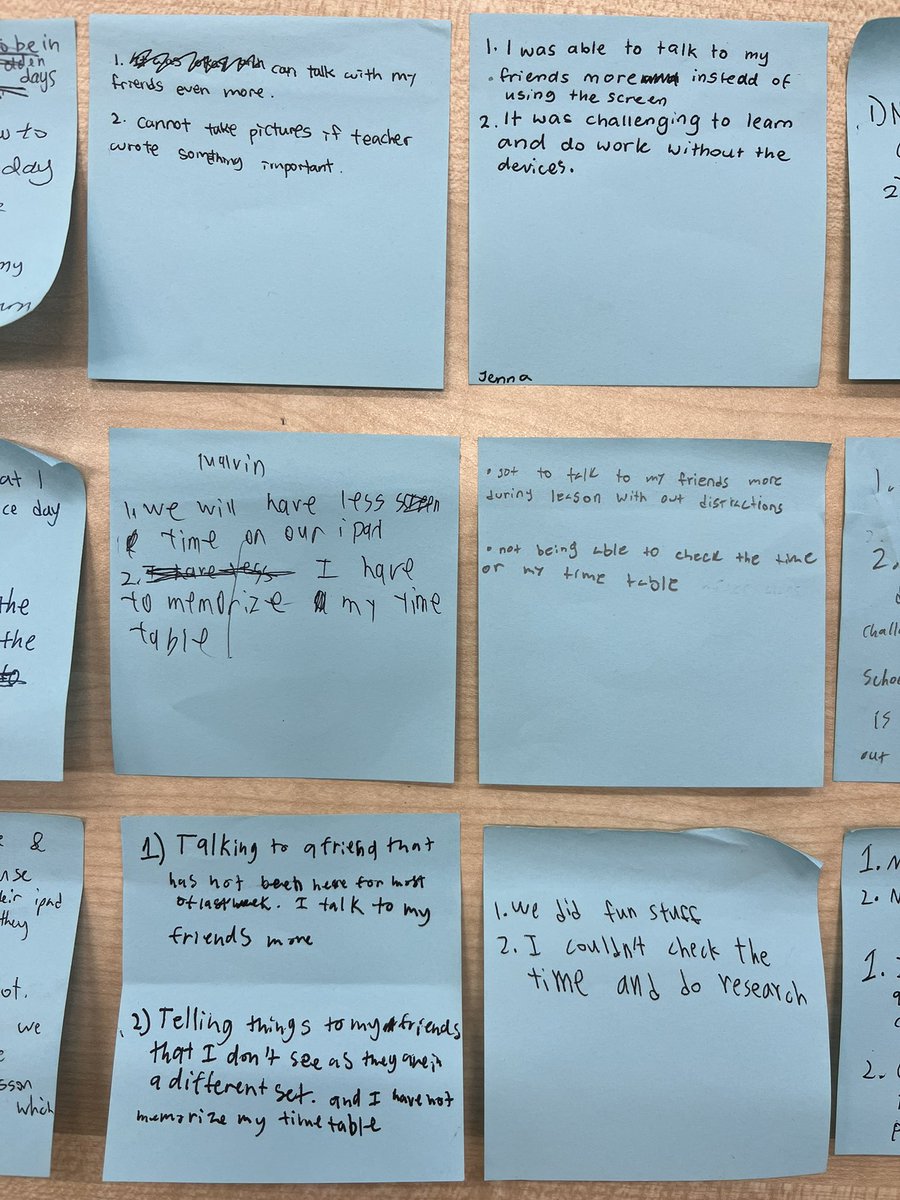 to be in
olden
days
w to
day
my
1. can talk with my
friends even more.
2. cannot take pictures if teacher
wrote something important.
1. I was able to talk to my
friends more instead of
using the screen
2. It was challenging to learn
and do work without the
devices.
Jenna
1)
2
at I
ce day
the
the
to
1. we will have less screen
time on our ipad
2. I have less I have
to memorize my time
table
• got to talk to my friends more
during lesson with out distractions
• not being able to check the time
or my time table
1.
2.
challe
Schoo
is
out
&
nse
eir ipad
they
ot.
we
sson
which
1) Talking to a friend that
has not been here for most
of last week. I talk to my
friends more
2) Telling things to my friends
that I don't see as they are in
a different set. and I have not
memorize my timetable
1. we did fun stuff
2. I couldn't check the
time and do research
1. N
2. N
1. I
2.